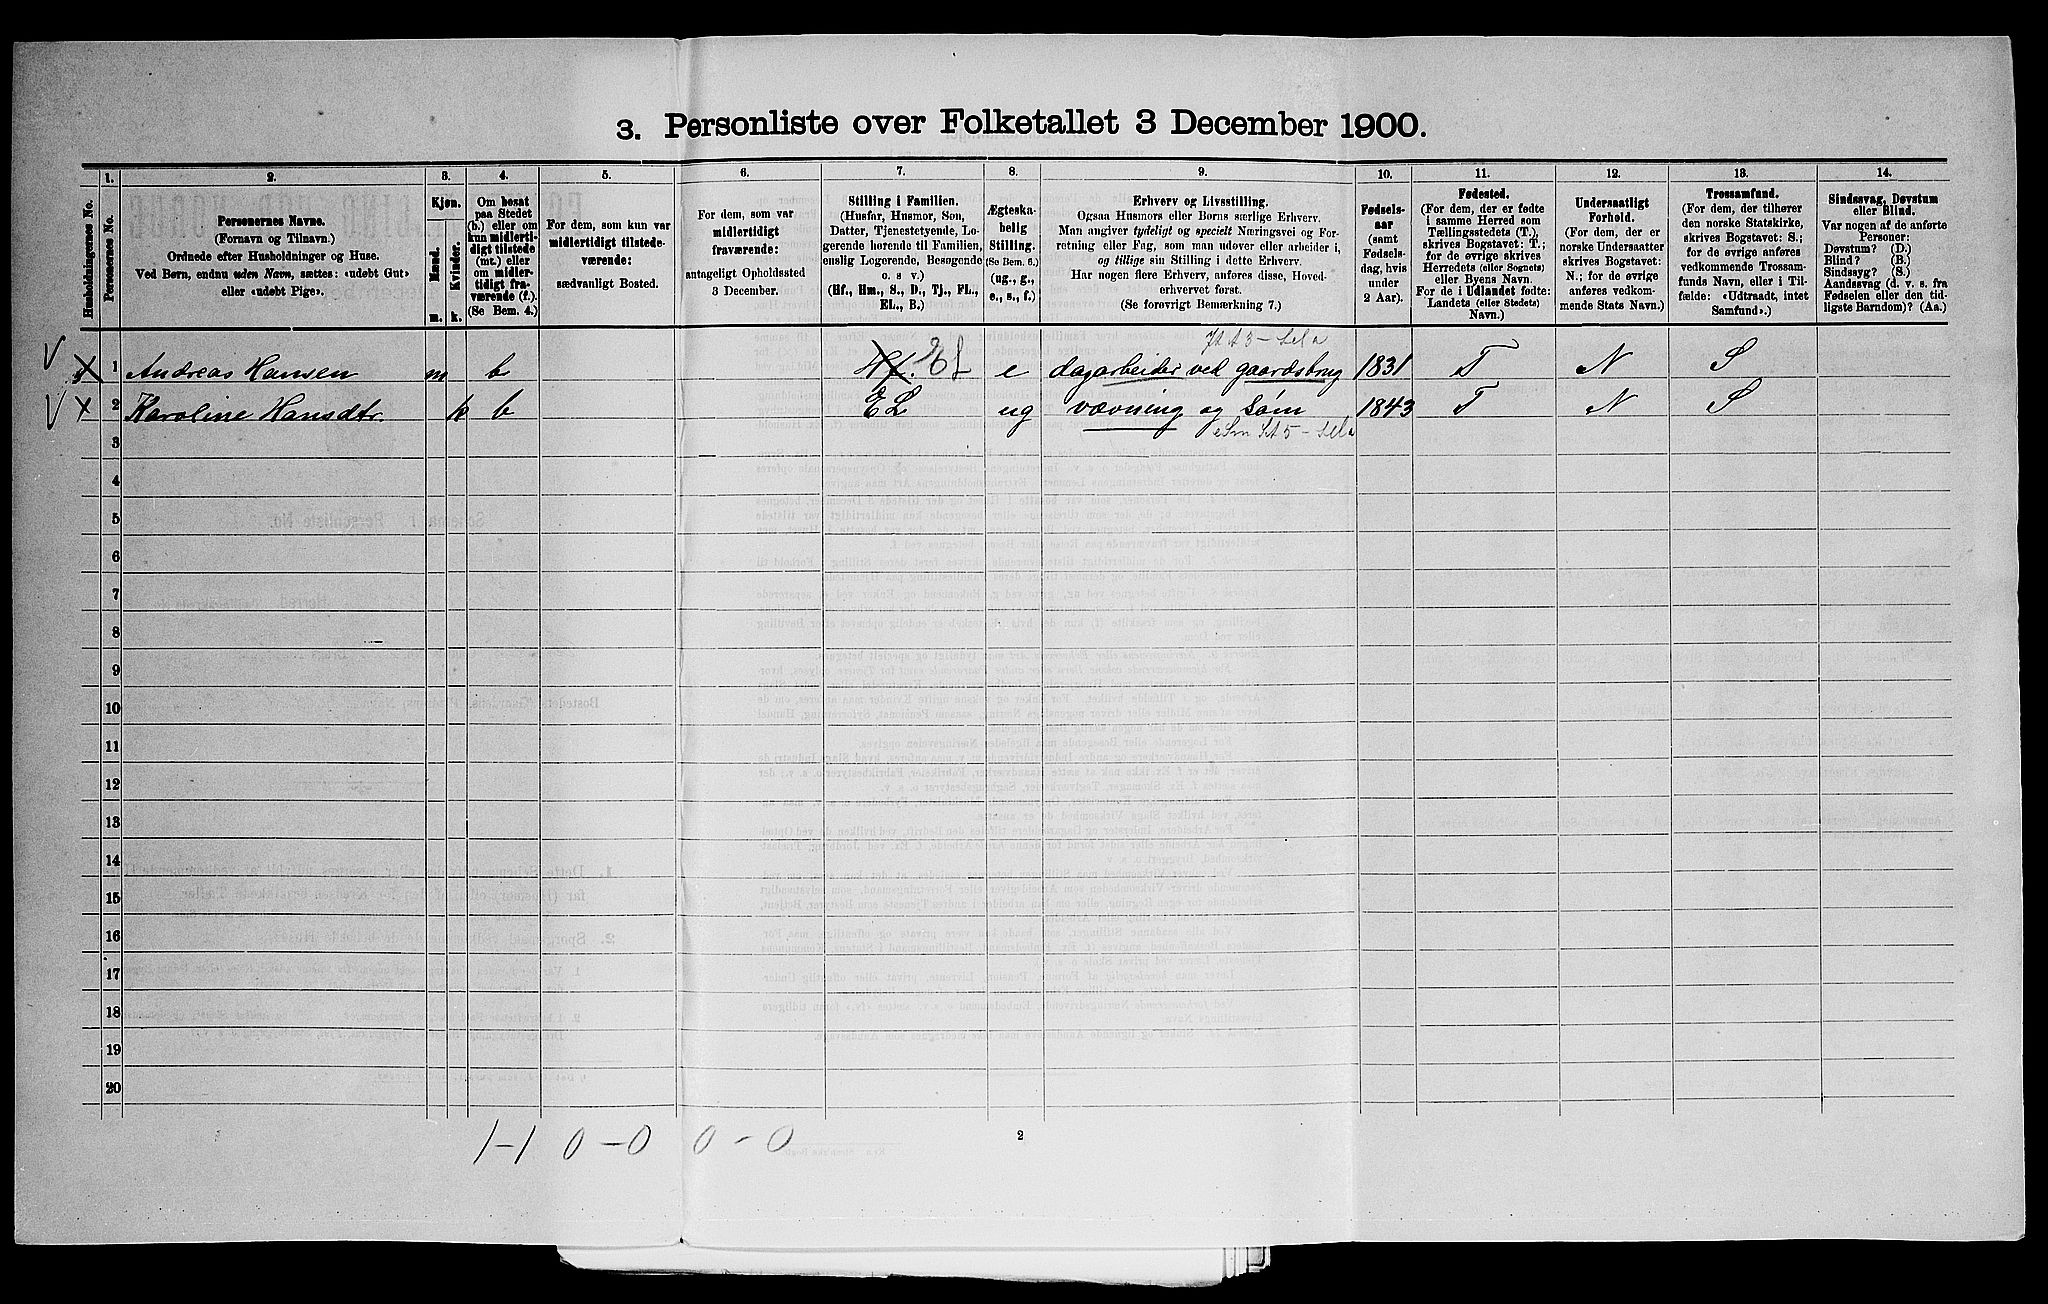 3. Personliste over Folketallet 3 December 1900.
1. 2. 3. 4. 5. 6. 7. 8. 9. 10. 11. 12. 13. 14.
Husholdningernes No.
Personernes No.
Personernes Navne.
(Fornavn og Tilnavn.)
Ordnede efter Husholdninger og Huse.
Ved Børn, endnu uden Navn, sættes: «udøbt Gut»
eller «udøbt Pige».
Kjøn.
Mænd.
Kvinder.
m. k.
Om bosat
paa Stedet
(b.) eller om
kun midlerti-
digt tilstede
(mt.) eller
om midler-
tidigt fra-
værende (f.).
(Se Bem. 4.)
For dem, som kun var
midlertidigt tilstede-
værende:
sædvanligt Bosted.
For dem, som var
midlertidigt
fraværende:
antageligt Opholdssted
3 December.
Stilling i Familien.
(Husfar, Husmor, Søn,
Datter, Tjenestetyende, Lo-
gerende hørende til Familien,
enslig Logerende, Besøgende
o. s v.)
(Hf., Hm., S., D., Tj., FL.,
EL., B.)
Ægteska-
belig
Stilling.
(Se Bem. 6.)
(ug., g.,
e., s., f.)
Erhverv og Livsstilling.
Ogsaa Husmors eller Børns særlige Erhverv.
Man angiver tydeligt og specielt Næringsvei og For-
retning eller Fag, som man udover eller arbeider i,
og tillige sin Stilling i dette Erhverv.
Har nogen flere Erhverv, anføres disse, Hoved-
erhvervet først.
(Se forøvrigt Bemærkning 7.)
Fødsels-
aar
(samt
Fødsels-
dag, hvis
under
2 Aar).
Fødested.
(For dem, der er fødte
i samme Herred som
Tællingsstedets (T.),
skrives Bogstavet: T.;
for de øvrige skrives
Herredets (eller Sognets)
eller Byens Navn.
For de i Udlandet fødte:
Landets (eller Stedets)
Navn.)
Undersaatligt
Forhold.
(For dem, der er
norske Undersaatter
skrives Bogstavet:
N.; for de øvrige
anføres vedkom-
mende Stats Navn.)
Trossamfund.
(For dem, der tilhører
den norske Statskirke,
skrives Bogstavet: S.;
for de øvrige anføres
vedkommende Trossam-
funds Navn, eller i Til-
fælde: «Udtraadt, intet
Samfund».)
Sindssvag, Døvstum
eller Blind.
Var nogen af de anførte
Personer:
Døvstum? (D.)
Blind? (B.)
Sindssyg? (S.)
Aandssvag (d. v. s. fra
Fødselen eller den tid-
ligste Barndom)? (Aa.)
1 Andreas Hansen m b Hf. El e dagarbeider ved gaardsbrug 1831 T N S
2 Karoline Hansdtr. k b EL ug vævning og Søm 1843 T N S
3
4
5
6
7
8
9
10
11
12
13
14
15
16
17
18
19
20
1-1 0-0 0-0
2